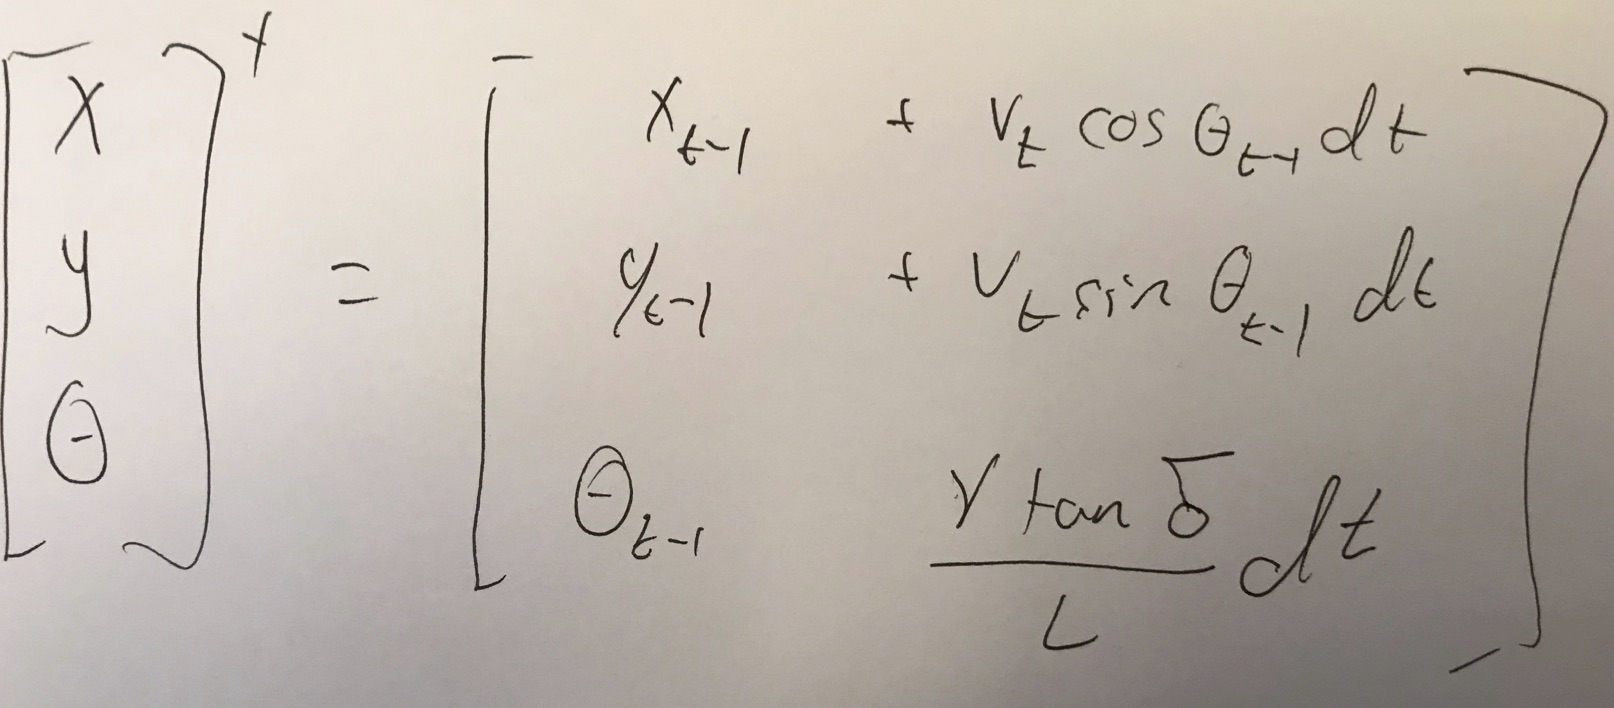 [x]⁺ = [x_{t-1} + v_t cos θ_{t-1} dt]
[y] = [y_{t-1} + v_t sin θ_{t-1} dt]
[θ] = [θ_{t-1} \frac{v tan δ}{L} dt]